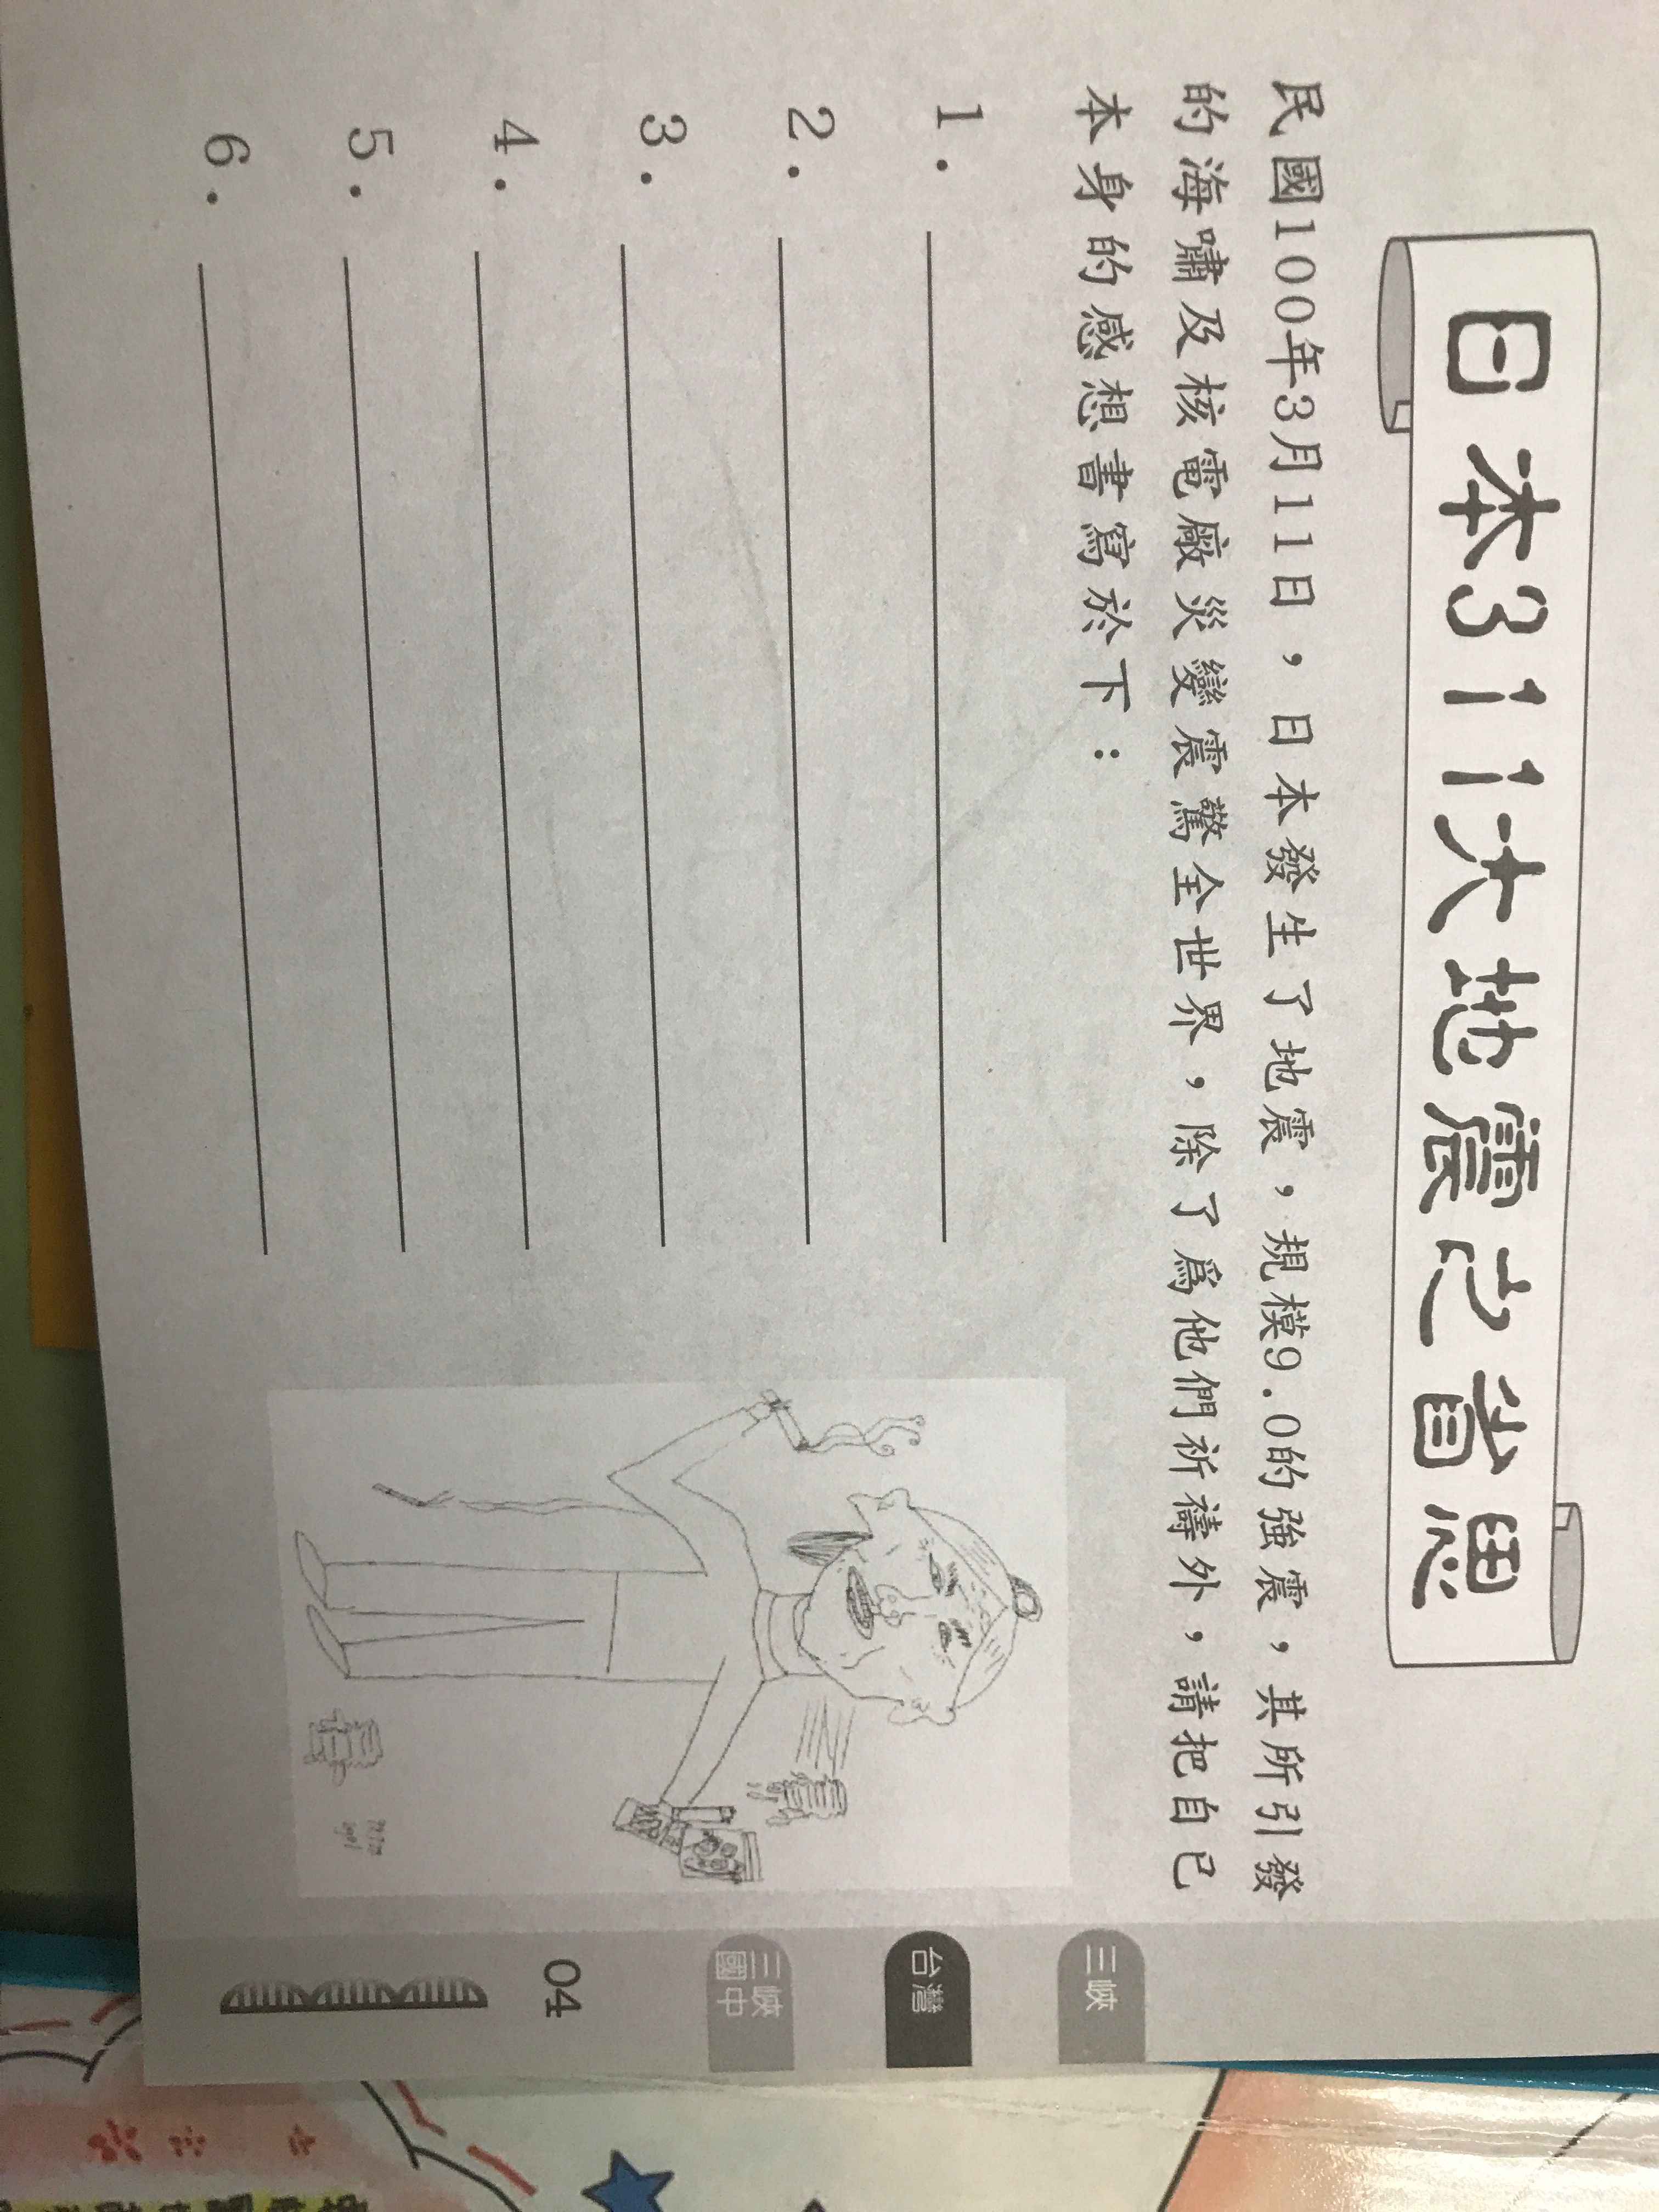 日本311大地震之省思
民國100年3月11日，日本發生了地震，規模9.0的強震，其所引發
的海嘯及核電廠災變震驚全世界，除了為他們祈禱外，請把自己
本身的感想書寫於下：
1.
2.
3.
4.
5.
6.
三峽
台灣
三峽
國中
04